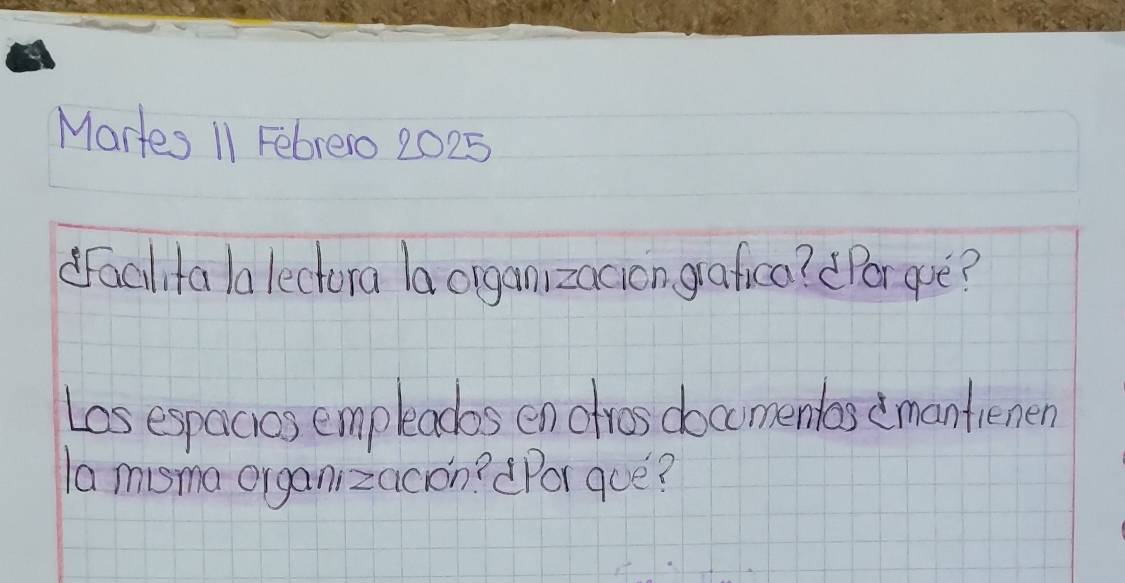 Martes 11 Febrero 2025
¿Facilita la lectura la organización grafica? ¿Por qué?
Los espacios empleados en otros documentos ¿mantienen
la misma organización? ¿Por qué?